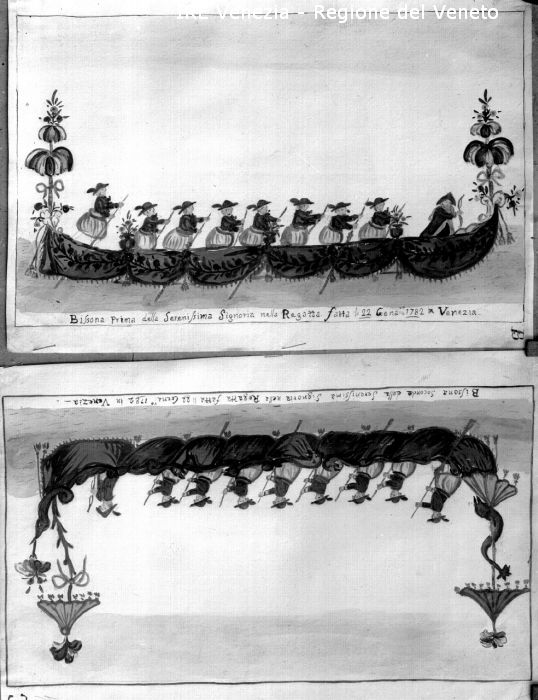 IRE Venezia - Regione del Veneto
Bissona Prima della Serenissima Signoria nella Regatta fatta li 22 Gena.º 1782 in Venezia.
B
Bissona Seconda della Serenissima Signoria nella Regatta fatta li 22 Gena.º 1782 in Venezia.